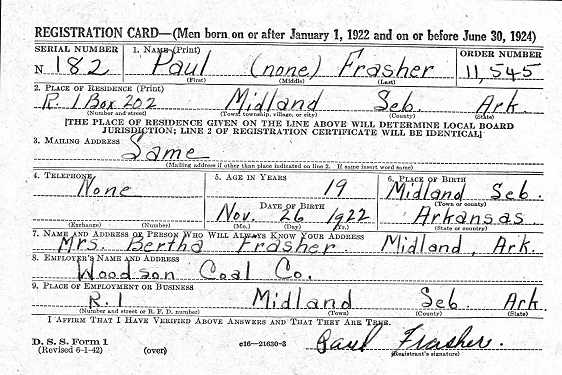 REGISTRATION CARD—(Men born on or after January 1, 1922 and on or before June 30, 1924)
SERIAL NUMBER 1. NAME (Print) ORDER NUMBER
N 182 Paul (none) Frasher 11,545
(First) (Middle) (Last)
2. PLACE OF RESIDENCE (Print)
R. 1 Box 202 Midland Seb. Ark.
(Number and street) (Town, township, village, or city) (County) (State)
[THE PLACE OF RESIDENCE GIVEN ON THE LINE ABOVE WILL DETERMINE LOCAL BOARD
JURISDICTION; LINE 2 OF REGISTRATION CERTIFICATE WILL BE IDENTICAL]
3. MAILING ADDRESS
Same
(Mailing address if other than place indicated on line 2. If same insert word same)
4. TELEPHONE 5. AGE IN YEARS 6. PLACE OF BIRTH
None 19 Midland Seb.
DATE OF BIRTH (Town or county)
Nov. 26 1922 Arkansas
(Exchange) (Number) (Mo.) (Day) (Yr.) (State or country)
7. NAME AND ADDRESS OF PERSON WHO WILL ALWAYS KNOW YOUR ADDRESS
Mrs. Bertha Frasher Midland, Ark.
8. EMPLOYER'S NAME AND ADDRESS
Woodson Coal Co.
9. PLACE OF EMPLOYMENT OR BUSINESS
R. 1 Midland Seb. Ark.
(Number and street or R. F. D. number) (Town) (County) (State)
I AFFIRM THAT I HAVE VERIFIED ABOVE ANSWERS AND THAT THEY ARE TRUE.
D. S. S. Form 1
(Revised 6-1-42) (over) c16—21630-3 Paul Frasher.
(Registrant's signature)